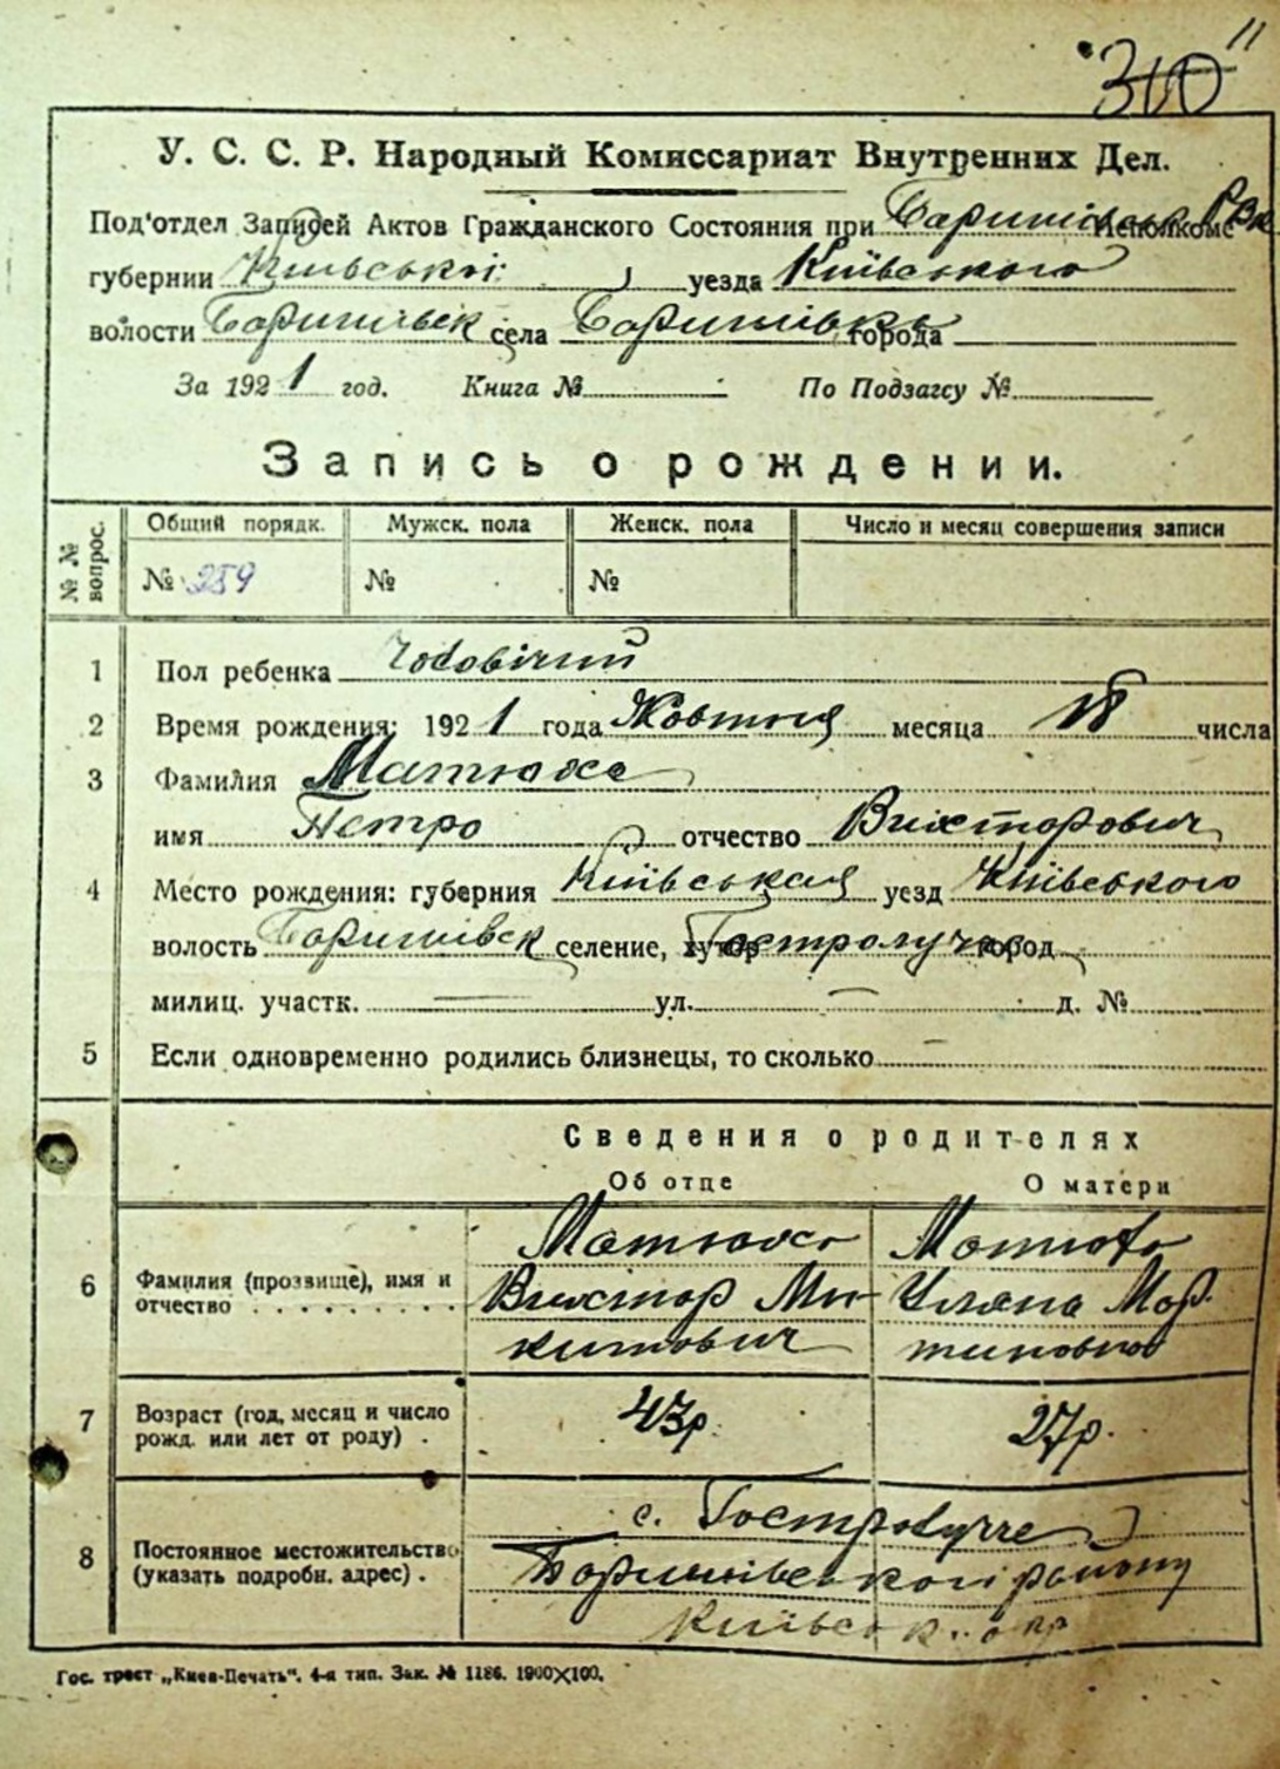 "310"
У. С. С. Р. Народный Комиссариат Внутренних Дел.
Под'отдел Записей Актов Гражданского Состояния при Баришівськ. РВК Исполкоме
губернии Київської уезда Київського
волости Баришівськ села Баришівка города
За 1921 год. Книга № По Подзагсу №
Запись о рождении.
№ № вопрос. Общий порядк. Мужск. пола Женск. пола Число и месяц совершения записи
№ 259 № №
1 Пол ребенка Чоловічий
2 Время рождения: 1921 года Жовтня месяца 18 числа
3 Фамилия Матюха
имя Петро отчество Вихторович
4 Место рождения: губерния Київськая уезд Київського
волость Баришівськ селение, хутор Гостролуччє город
милиц. участк. — ул. — д. №
5 Если одновременно родились близнецы, то сколько —
Сведения о родителях
Об отце О матери
6 Фамилия (прозвище), имя и отчество
Матюха Вихтор Микитович
Матюха Уляна Мартиновна
7 Возраст (год, месяц и число рожд. или лет от роду) . 43р. 27р.
8 Постоянное местожительство (указать подробн. адрес) .
с. Гостролуччє
Баришівського району
Київськ. окр
Гос. трест „Киев-Печать". 4-я тип. Зак. № 1186. 1900×100.